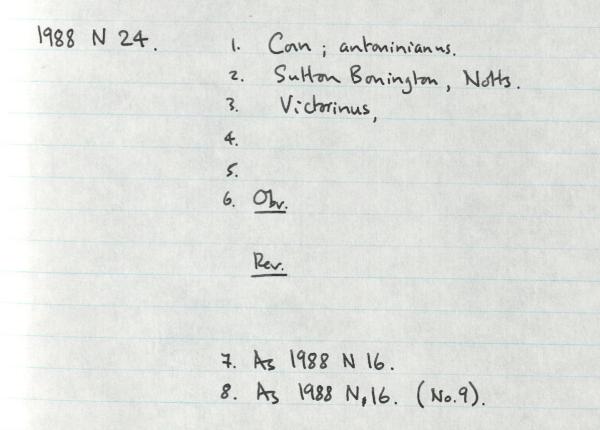 1988 N 24. 1. Coin ; antoninianus.
2. Sutton Bonington, Notts.
3. Victorinus,
4.
5.
6. Obv.
Rev.
7. As 1988 N 16.
8. As 1988 N, 16. (No.9).